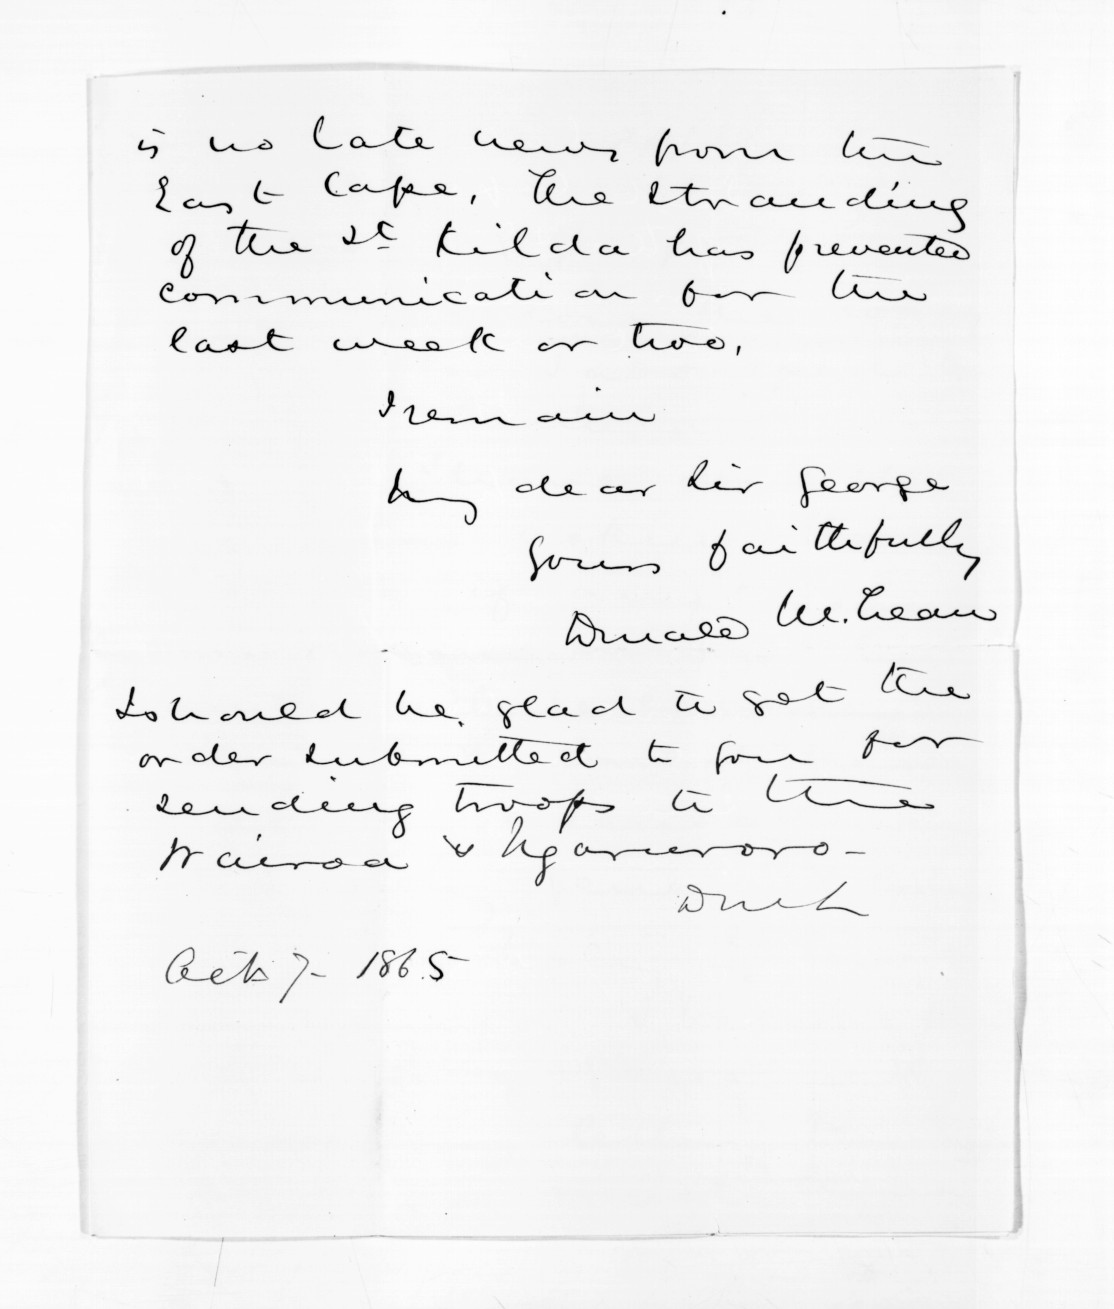 is no late news from the
East Cape, the stranding
of the St Kilda has prevented
communication for the
last week or two.
I remain
My dear Sir George
Yours faithfully
Donald McLean
I should be glad to get the
order submitted to you for
sending troops to the
Wairoa & Ngaruroro -
DMcL
Octb 7 - 1865